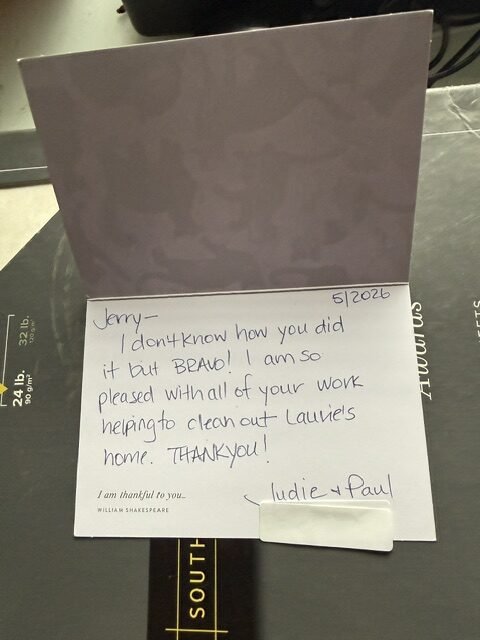 5/2026
Jerry—
I don't know how you did
it but BRAVO! I am so
pleased with all of your work
helping to clean out Laurie's
home. THANKYOU!
Judie + Paul
I am thankful to you..
WILLIAM SHAKESPEARE
32 lb.
120 g/m²
24 lb.
90 g/m²
Awards
SOUTH